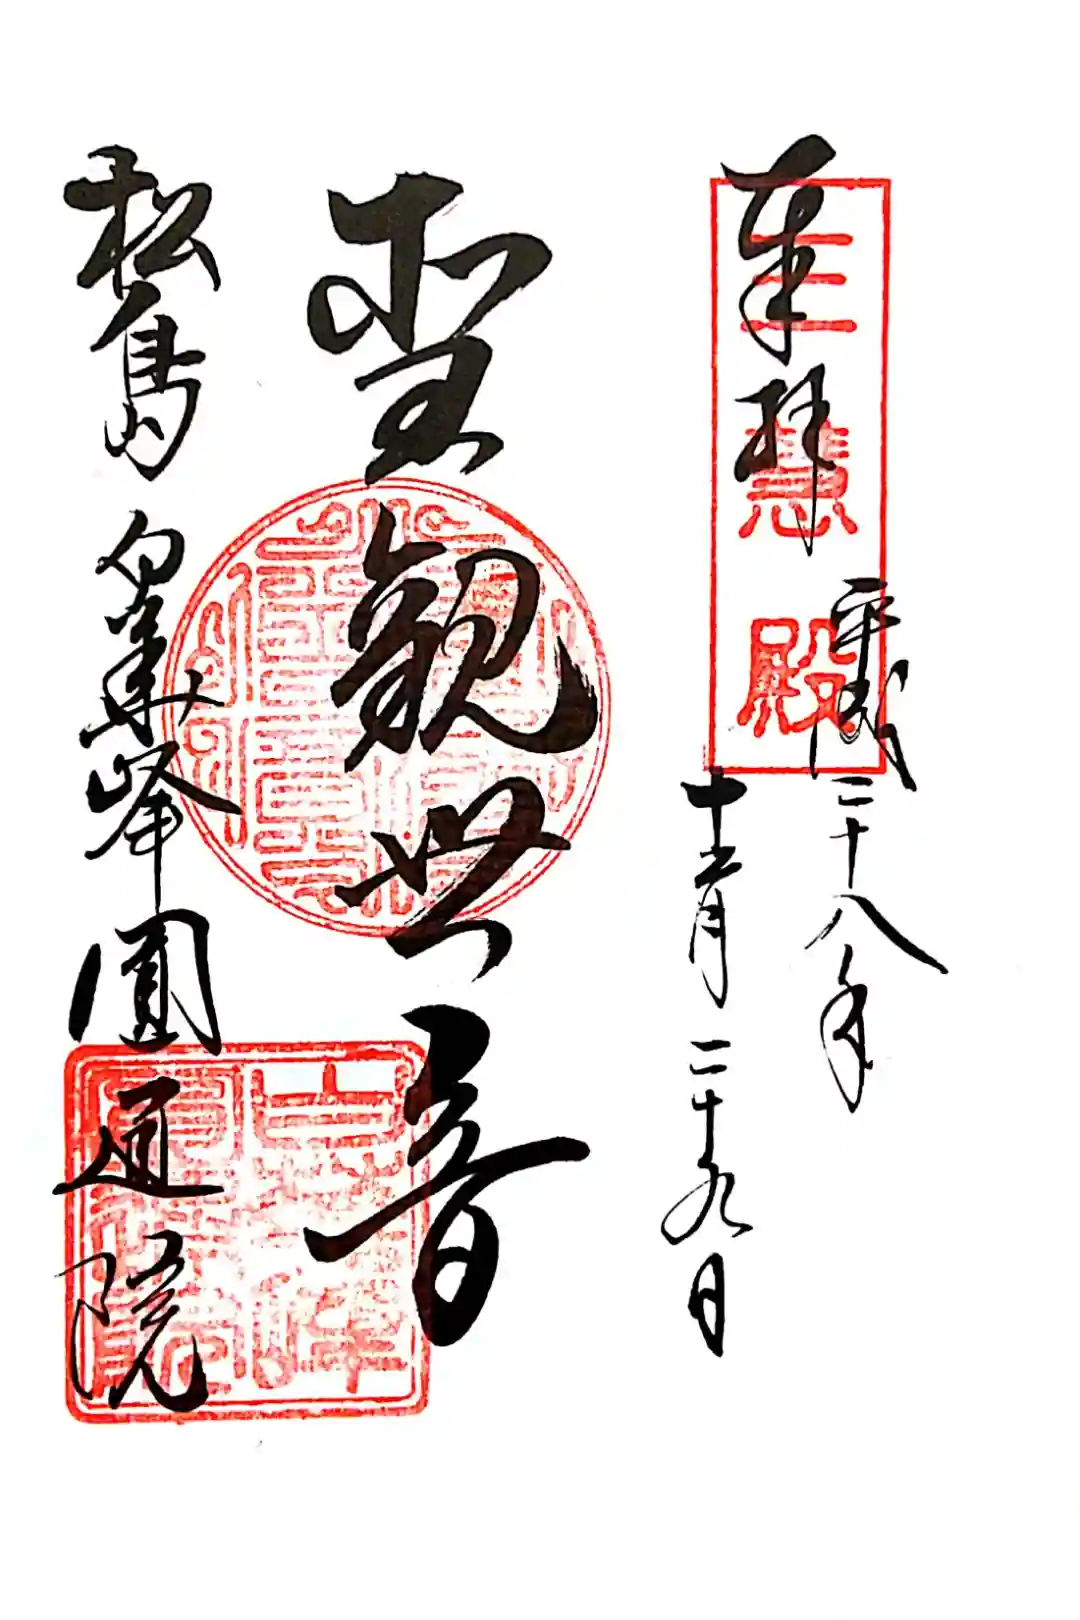 奉拝
三慧殿
平成二十八年
十二月二十九日
聖観世音
松島
峰圓通院